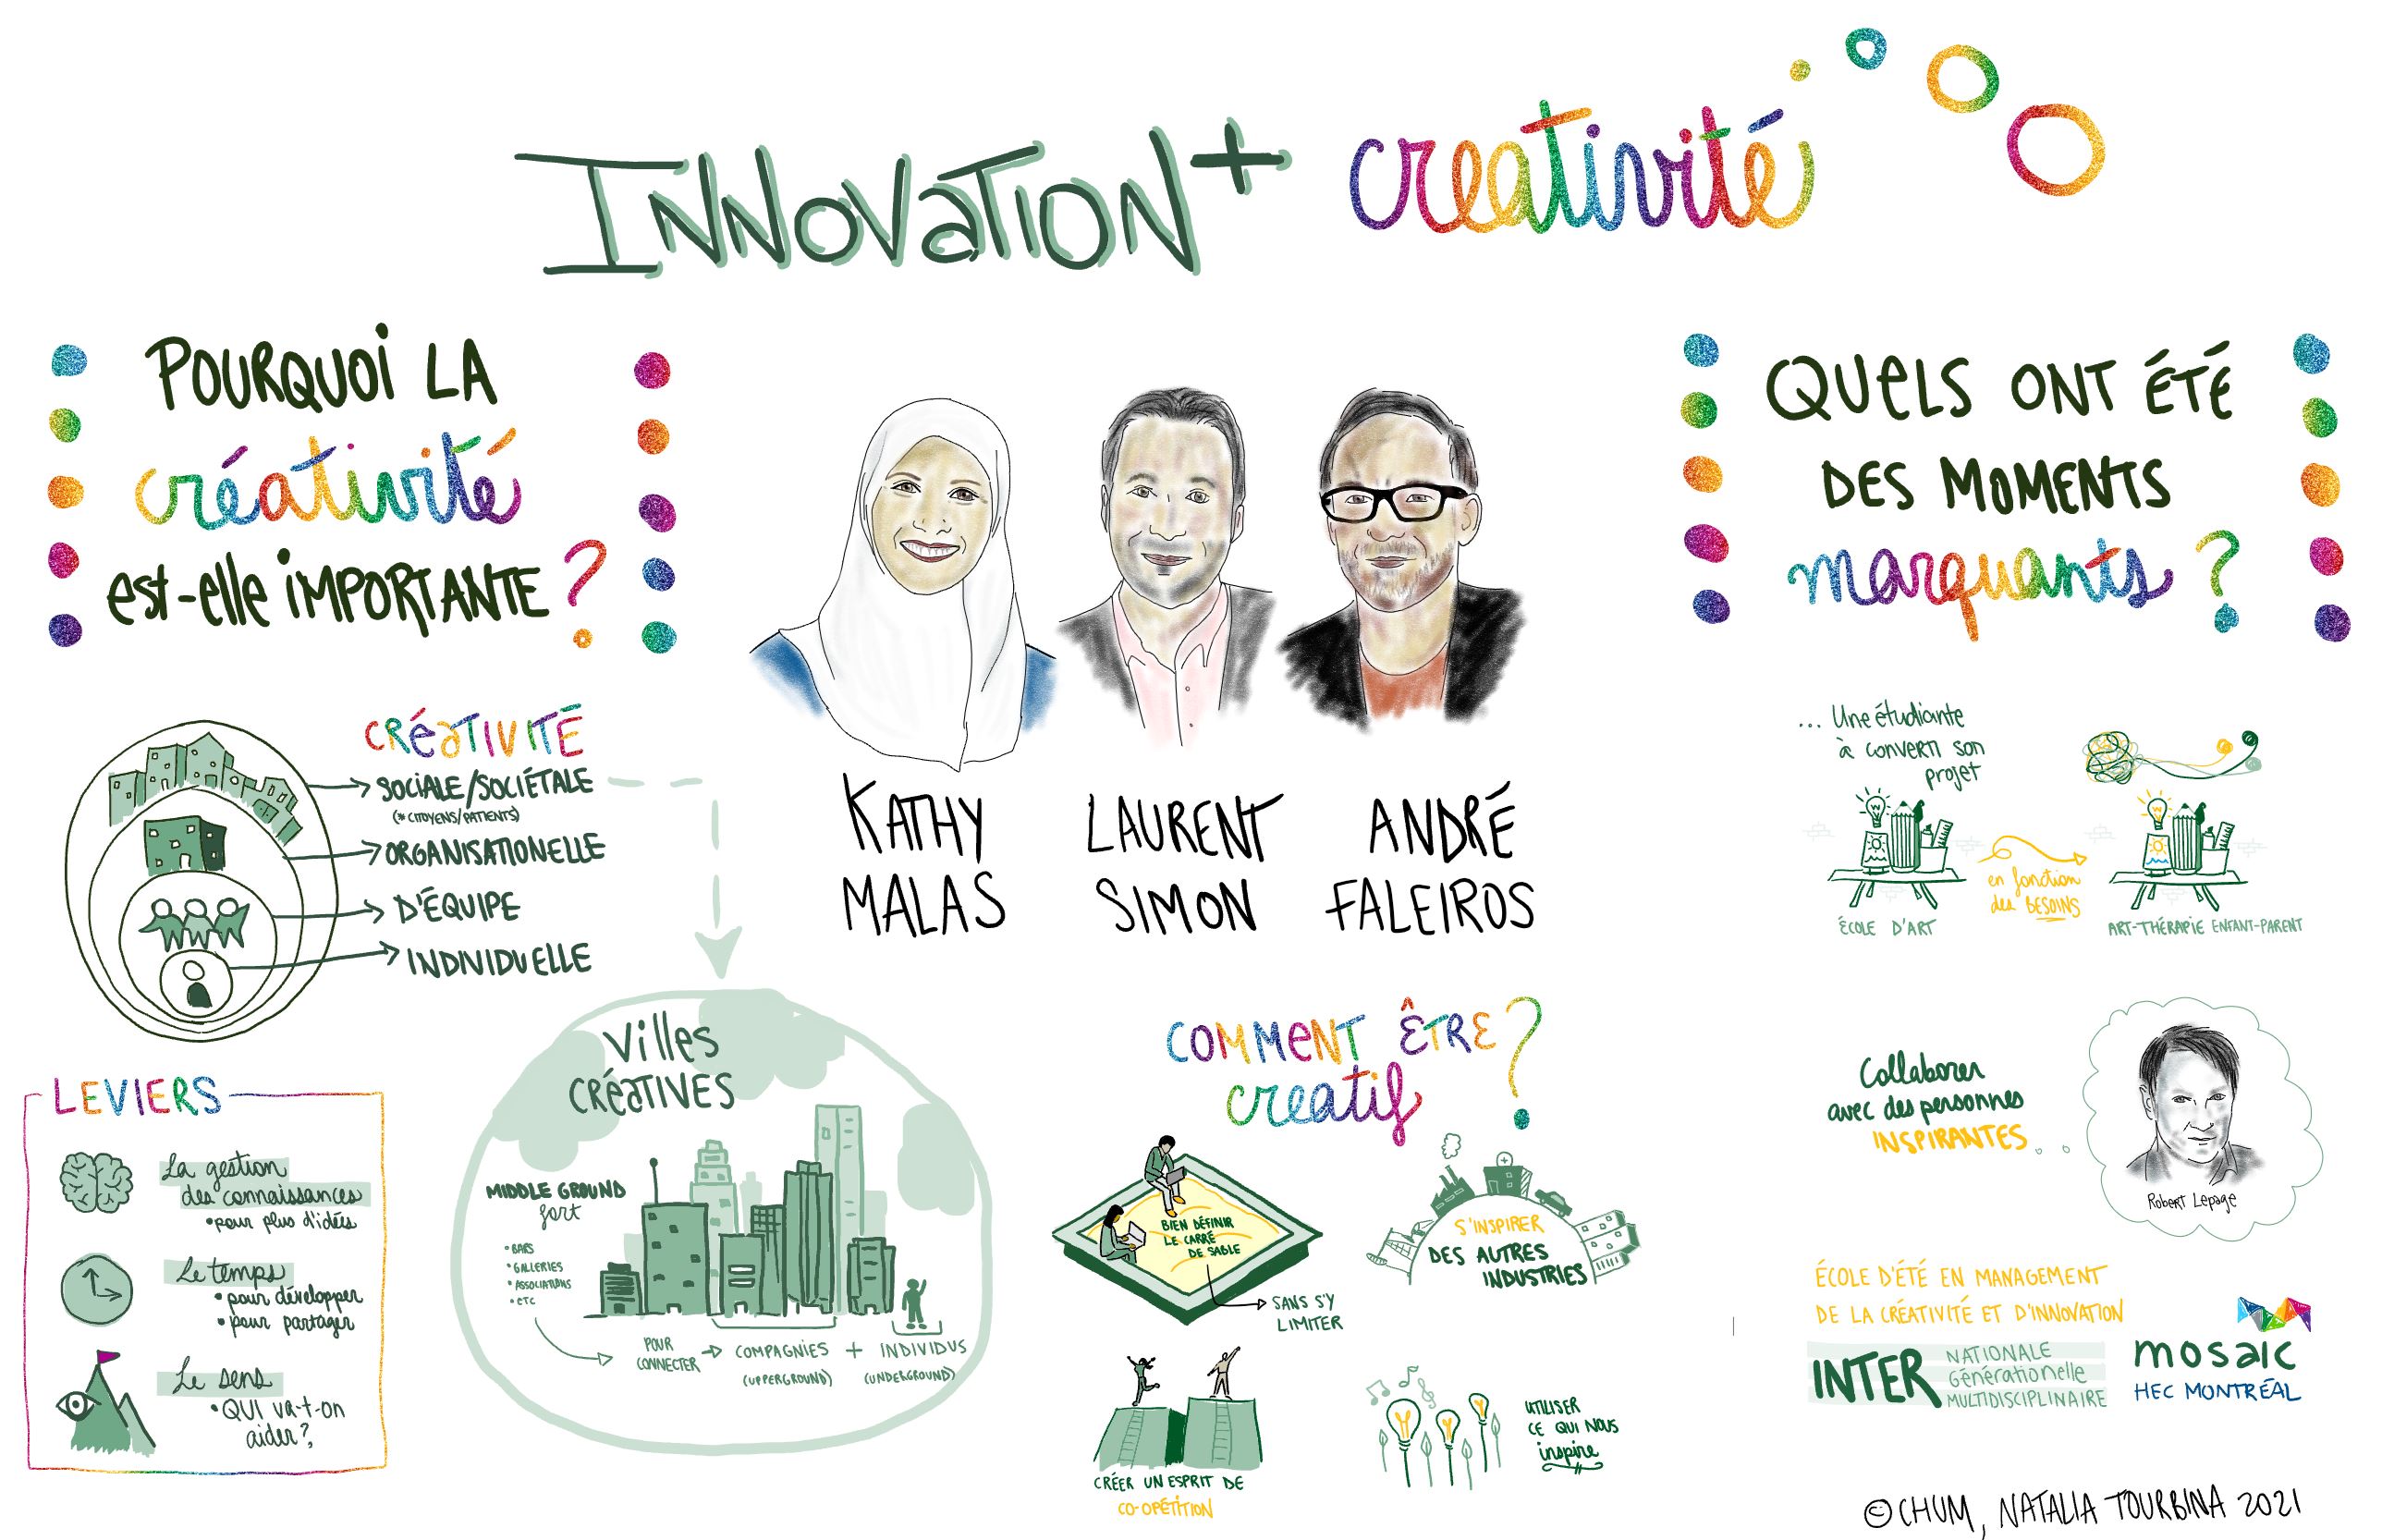 INNOVATION + creativité
POURQUOI LA
créativité
est-elle IMPORTANTE ?
CRÉATIVITÉ
SOCIALE/SOCIÉTALE
(* CITOYENS/PATIENTS)
ORGANISATIONELLE
D'ÉQUIPE
INDIVIDUELLE
LEVIERS
La gestion
des connaissances
• pour plus d'idées
Le temps
• pour développer
• pour partager
Le sens
• QUI va-t-on
aider?
Villes
CRÉATIVES
MIDDLE GROUND
fort
• BARS
• GALLERIES
• ASSOCIATIONS
• ETC
POUR
CONNECTER
COMPAGNIES + INDIVIDUS
(UPPERGROUND) (UNDERGROUND)
KATHY
MALAS
LAURENT
SIMON
ANDRÉ
FALEIROS
COMMENT ÊTRE
creatif ?
BIEN DÉFINIR
LE CARRÉ
DE SABLE
SANS S'Y
LIMITER
S'INSPIRER
DES AUTRES
INDUSTRIES
CRÉER UN ESPRIT DE
CO-OPÉTITION
UTILISER
CE QUI NOUS
inspire
QUELS ONT ÉTÉ
DES MOMENTS
marquants ?
... Une étudiante
à converti son
projet
ÉCOLE D'ART
en fonction
des BESOINS
ART-THÉRAPIE ENFANT-PARENT
Collaborer
avec des personnes
INSPIRANTES
Robert Lepage
ÉCOLE D'ÉTÉ EN MANAGEMENT
DE LA CRÉATIVITÉ ET D'INNOVATION
INTER
NATIONALE
Générationelle
MULTIDISCIPLINAIRE
mosaic
HEC MONTRÉAL
© CHUM, NATALIA TOURBINA 2021